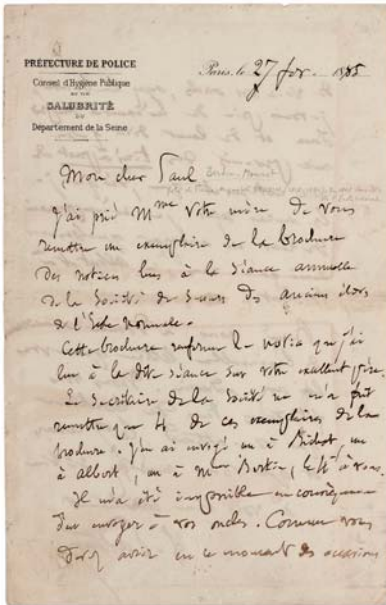 PRÉFECTURE DE POLICE
Conseil d'Hygiène Publique
ET DE
SALUBRITÉ
DU
Département de la Seine
Paris, le 27 fév. 1885
Mon cher Paul
J'ai prié Mme votre mère de vous
remettre un exemplaire de la brochure
des notices lues à la séance annuelle
de la Société de Secours des anciens élèves
de l'École normale.
Cette brochure renferme la notice que j'ai
lue à la dite séance sur votre excellent père.
Le Secrétaire de la Société ne m'a fait
remettre que 4 de ces exemplaires de la
brochure. J'en ai envoyé un à Bichat, un
à Albert, un à Mme Bertin, le 4e à vous.
Il m'a été impossible en conséquence
d'en envoyer à vos oncles. Comme vous
devez avoir en ce moment des occasions